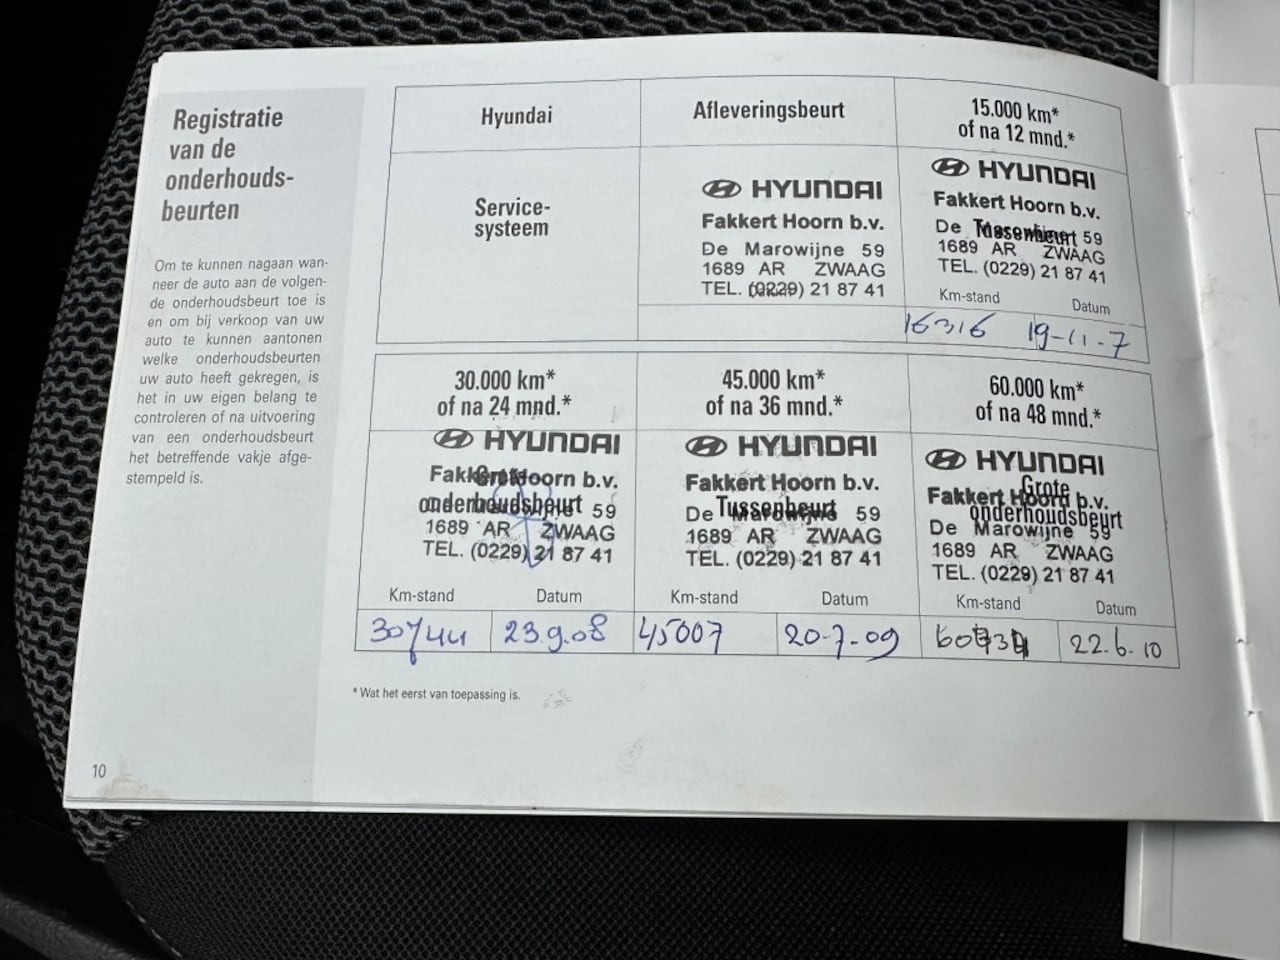 Registratie
van de
onderhouds-
beurten
Om te kunnen nagaan wan-
neer de auto aan de volgen-
de onderhoudsbeurt toe is
en om bij verkoop van uw
auto te kunnen aantonen
welke onderhoudsbeurten
uw auto heeft gekregen, is
het in uw eigen belang te
controleren of na uitvoering
van een onderhoudsbeurt
het betreffende vakje afge-
stempeld is.
10
Hyundai
Service-
systeem
Afleveringsbeurt
HYUNDAI
Fakkert Hoorn b.v.
De Marowijne 59
1689 AR ZWAAG
TEL. (0229) 21 87 41
15.000 km*
of na 12 mnd.*
HYUNDAI
Fakkert Hoorn b.v.
De Marowijne 59
Tussenbeurt
1689 AR ZWAAG
TEL. (0229) 21 87 41
Km-stand Datum
16316 19-11-7
30.000 km*
of na 24 mnd.*
HYUNDAI
Fakkert Hoorn b.v.
Grote
onderhoudsbeurt
De Marowijne 59
1689 AR ZWAAG
TEL. (0229) 21 87 41
Km-stand Datum
30744 23.9.08
45.000 km*
of na 36 mnd.*
HYUNDAI
Fakkert Hoorn b.v.
Tussenbeurt
De Marowijne 59
1689 AR ZWAAG
TEL. (0229) 21 87 41
Km-stand Datum
45007 20-7-09
60.000 km*
of na 48 mnd.*
HYUNDAI
Grote
Fakkert Hoorn b.v.
onderhoudsbeurt
De Marowijne 59
1689 AR ZWAAG
TEL. (0229) 21 87 41
Km-stand Datum
22.6.10
* Wat het eerst van toepassing is.